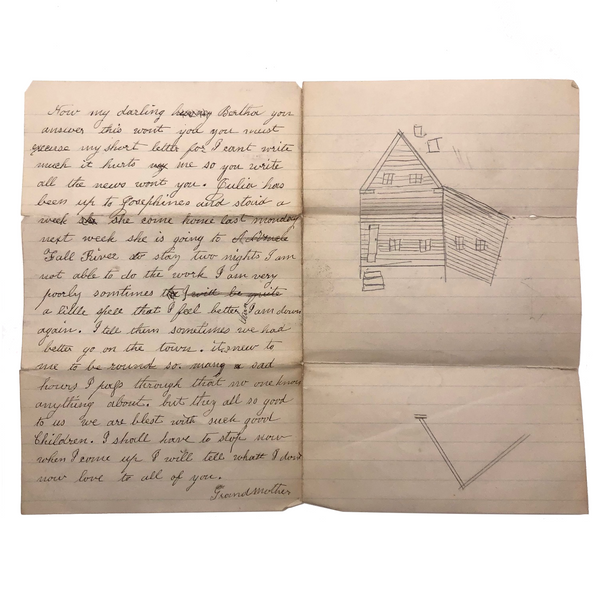 Now my darling Bertha you
answer this wont you you must
excuse my short letter for I cant write
much it hurts me so you write
all the news wont you. Eulia has
been up to Josephines and staid a
week she come home last monday
next week she is going to
Fall River to stay two nights I am
not able to do the work I am very
poorly somtimes
a little spell that I feel better than I am down
again. I tell them sometimes we had
better go on the town. it new to
me to be round so. many sad
hours I pass through that no one know
anything about. but they all so good
to us we are blest with such good
Children. I shall have to stop now
when I come up I will tell what I dont
now love to all of you.
Grandmother